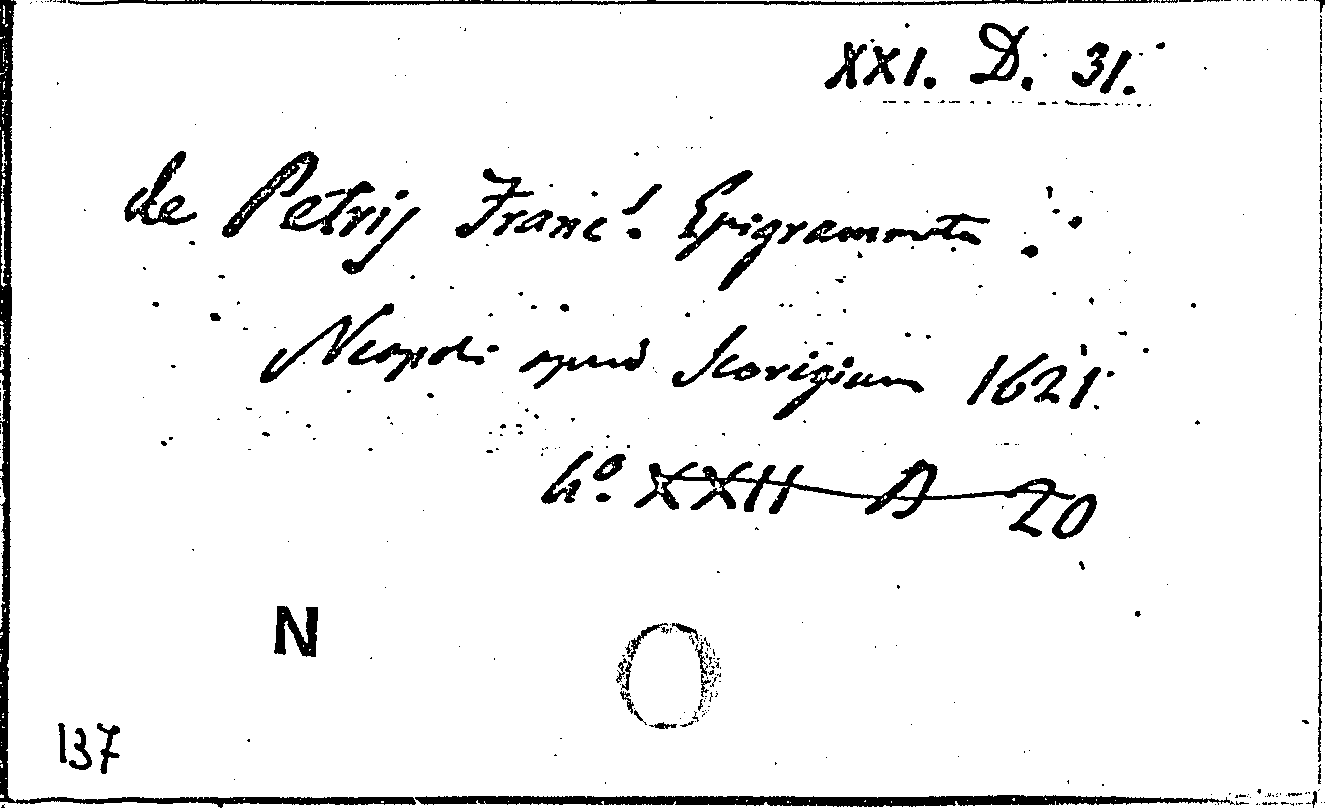 XXI. D. 31.
de Petrij Franc.ⁱ Epigrammata.
Neapoli apud Scorigium 1621.
4º. XXII A 20
N
137